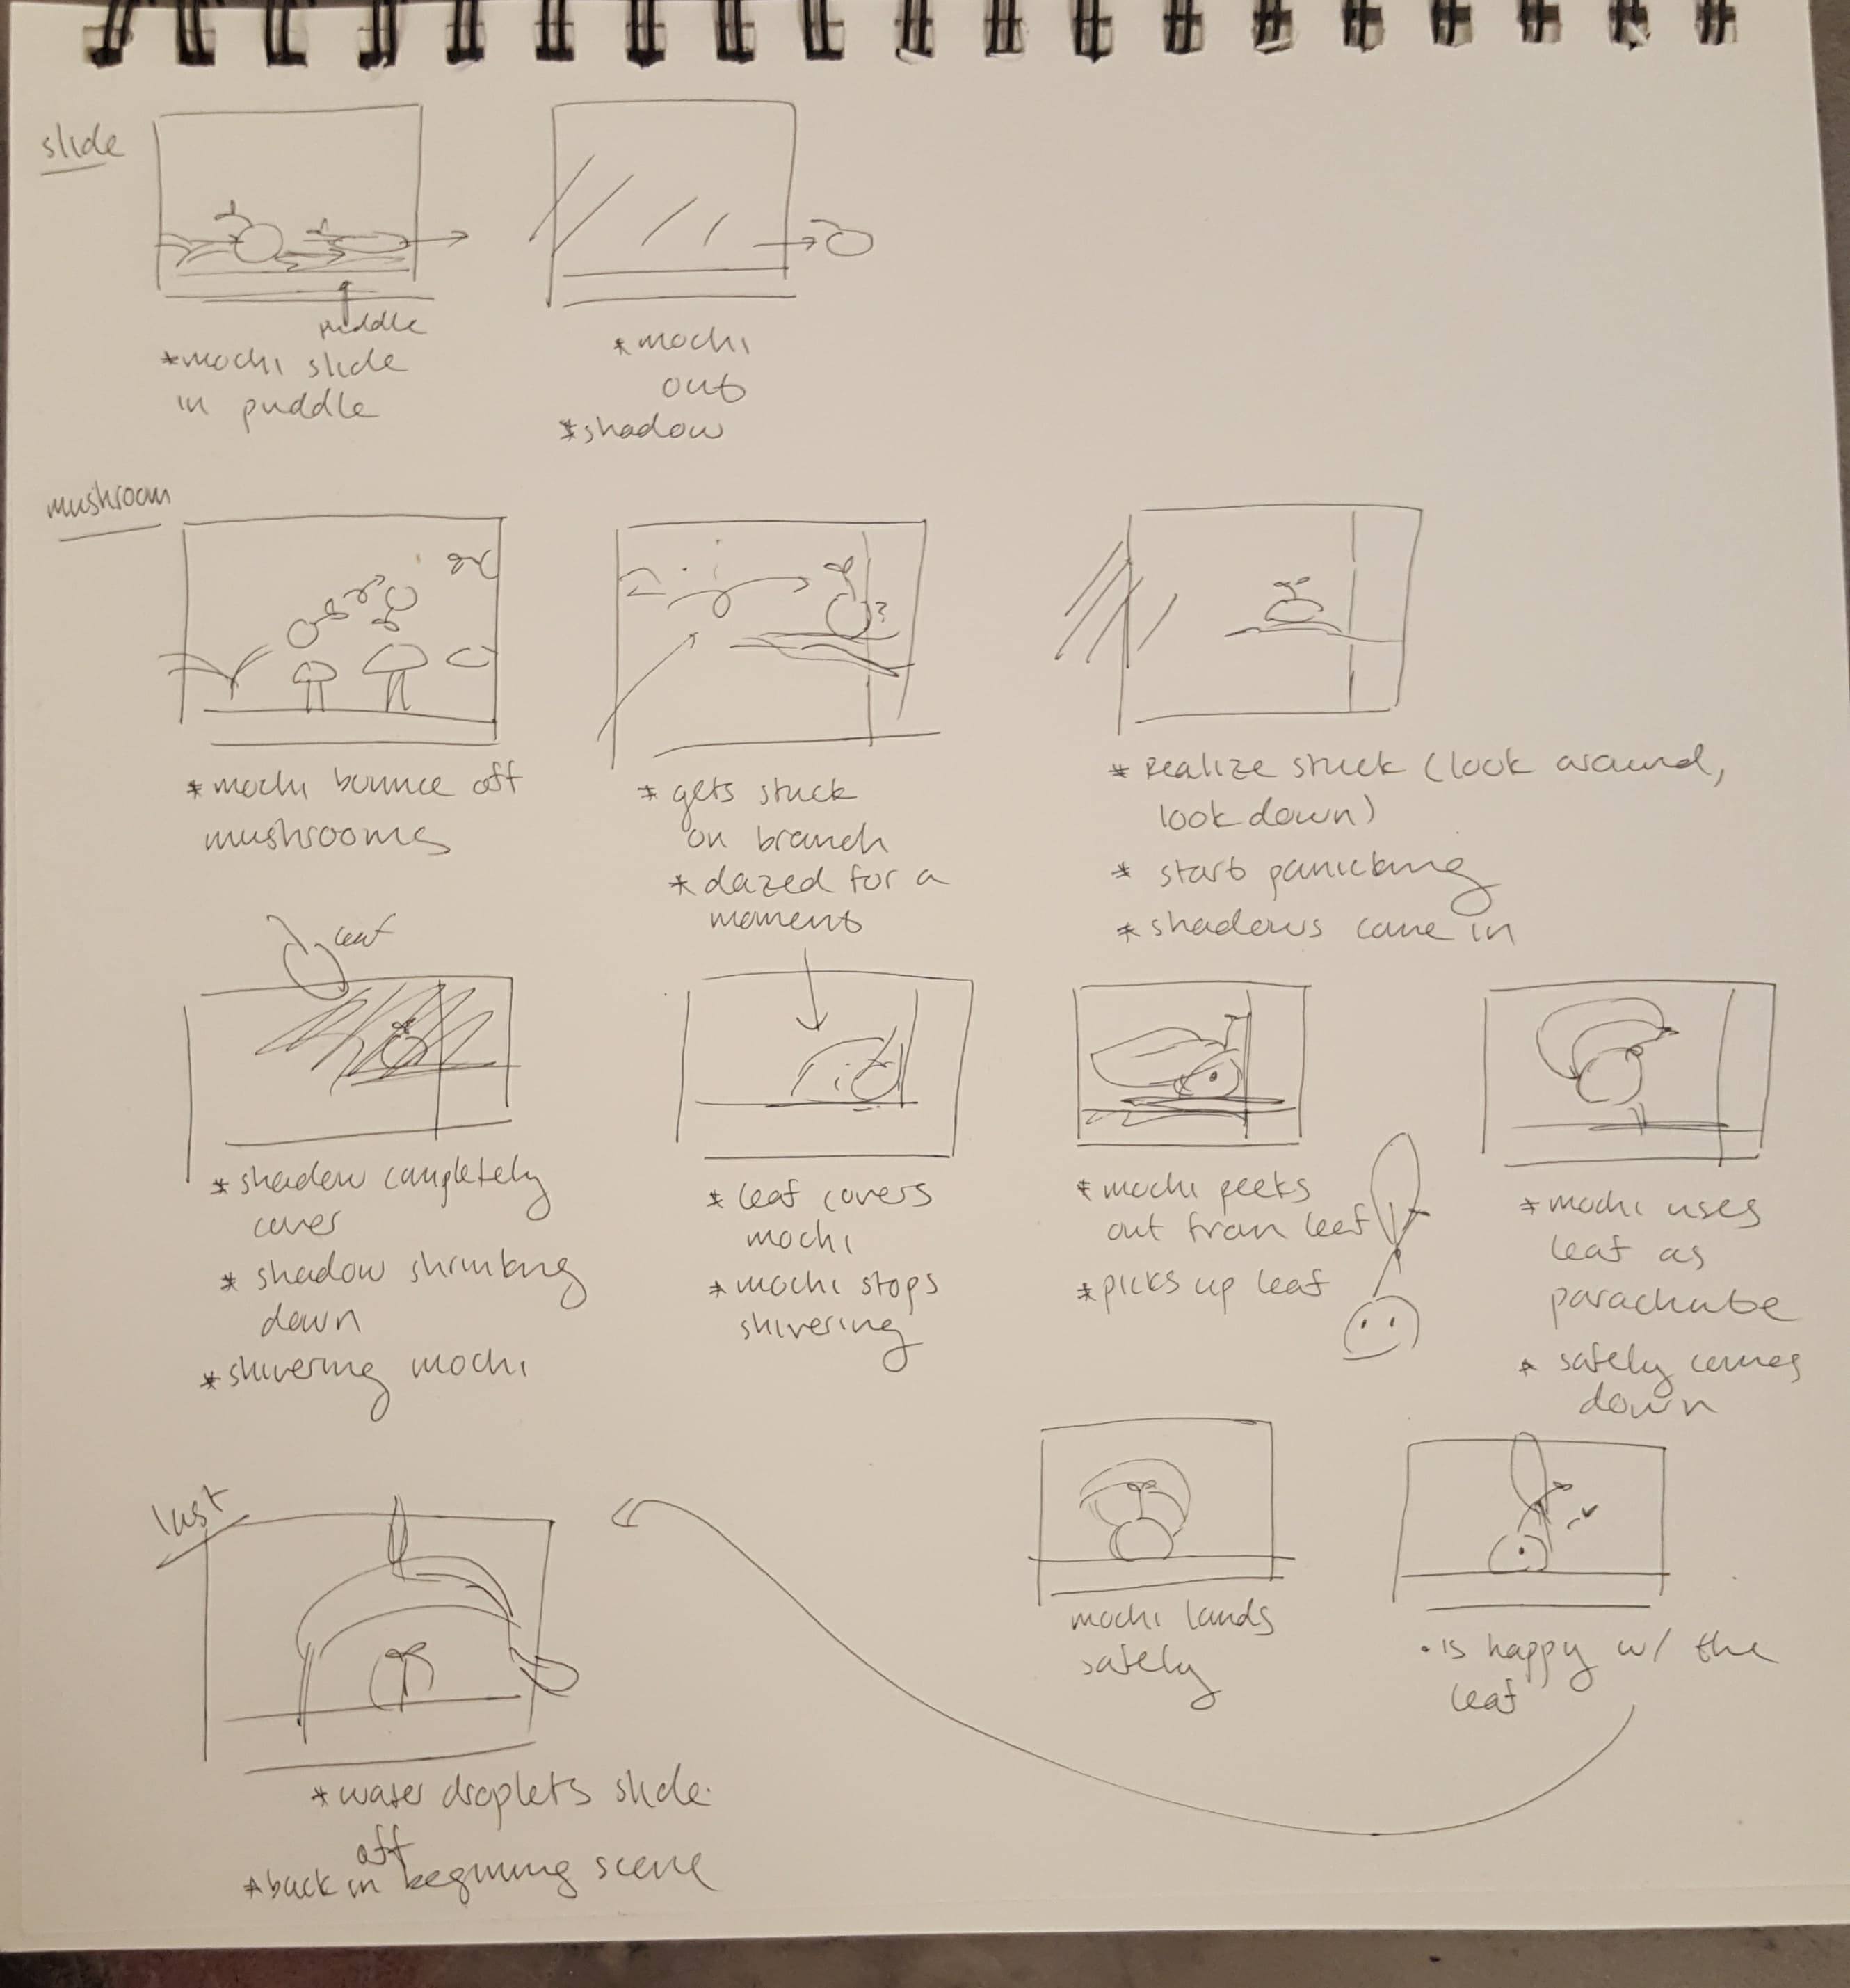 slide
puddle
*mochi slide
in puddle
*mochi
out
*shadow
mushroom
*mochi bounce off
mushrooms
*gets stuck
on branch
*dazed for a
moment
*Realize stuck (look around,
look down)
*start panicking
*shadows come in
leaf
*shadow completely
cover
*shadow shrinking
down
*shivering mochi
*leaf covers
mochi
*mochi stops
shivering
*mochi peeks
out from leaf
*picks up leaf
*mochi uses
leaf as
parachute
*safely comes
down
mochi lands
safely
•is happy w/ the
leaf
last
*water droplets slide
off
*back in beginning scene